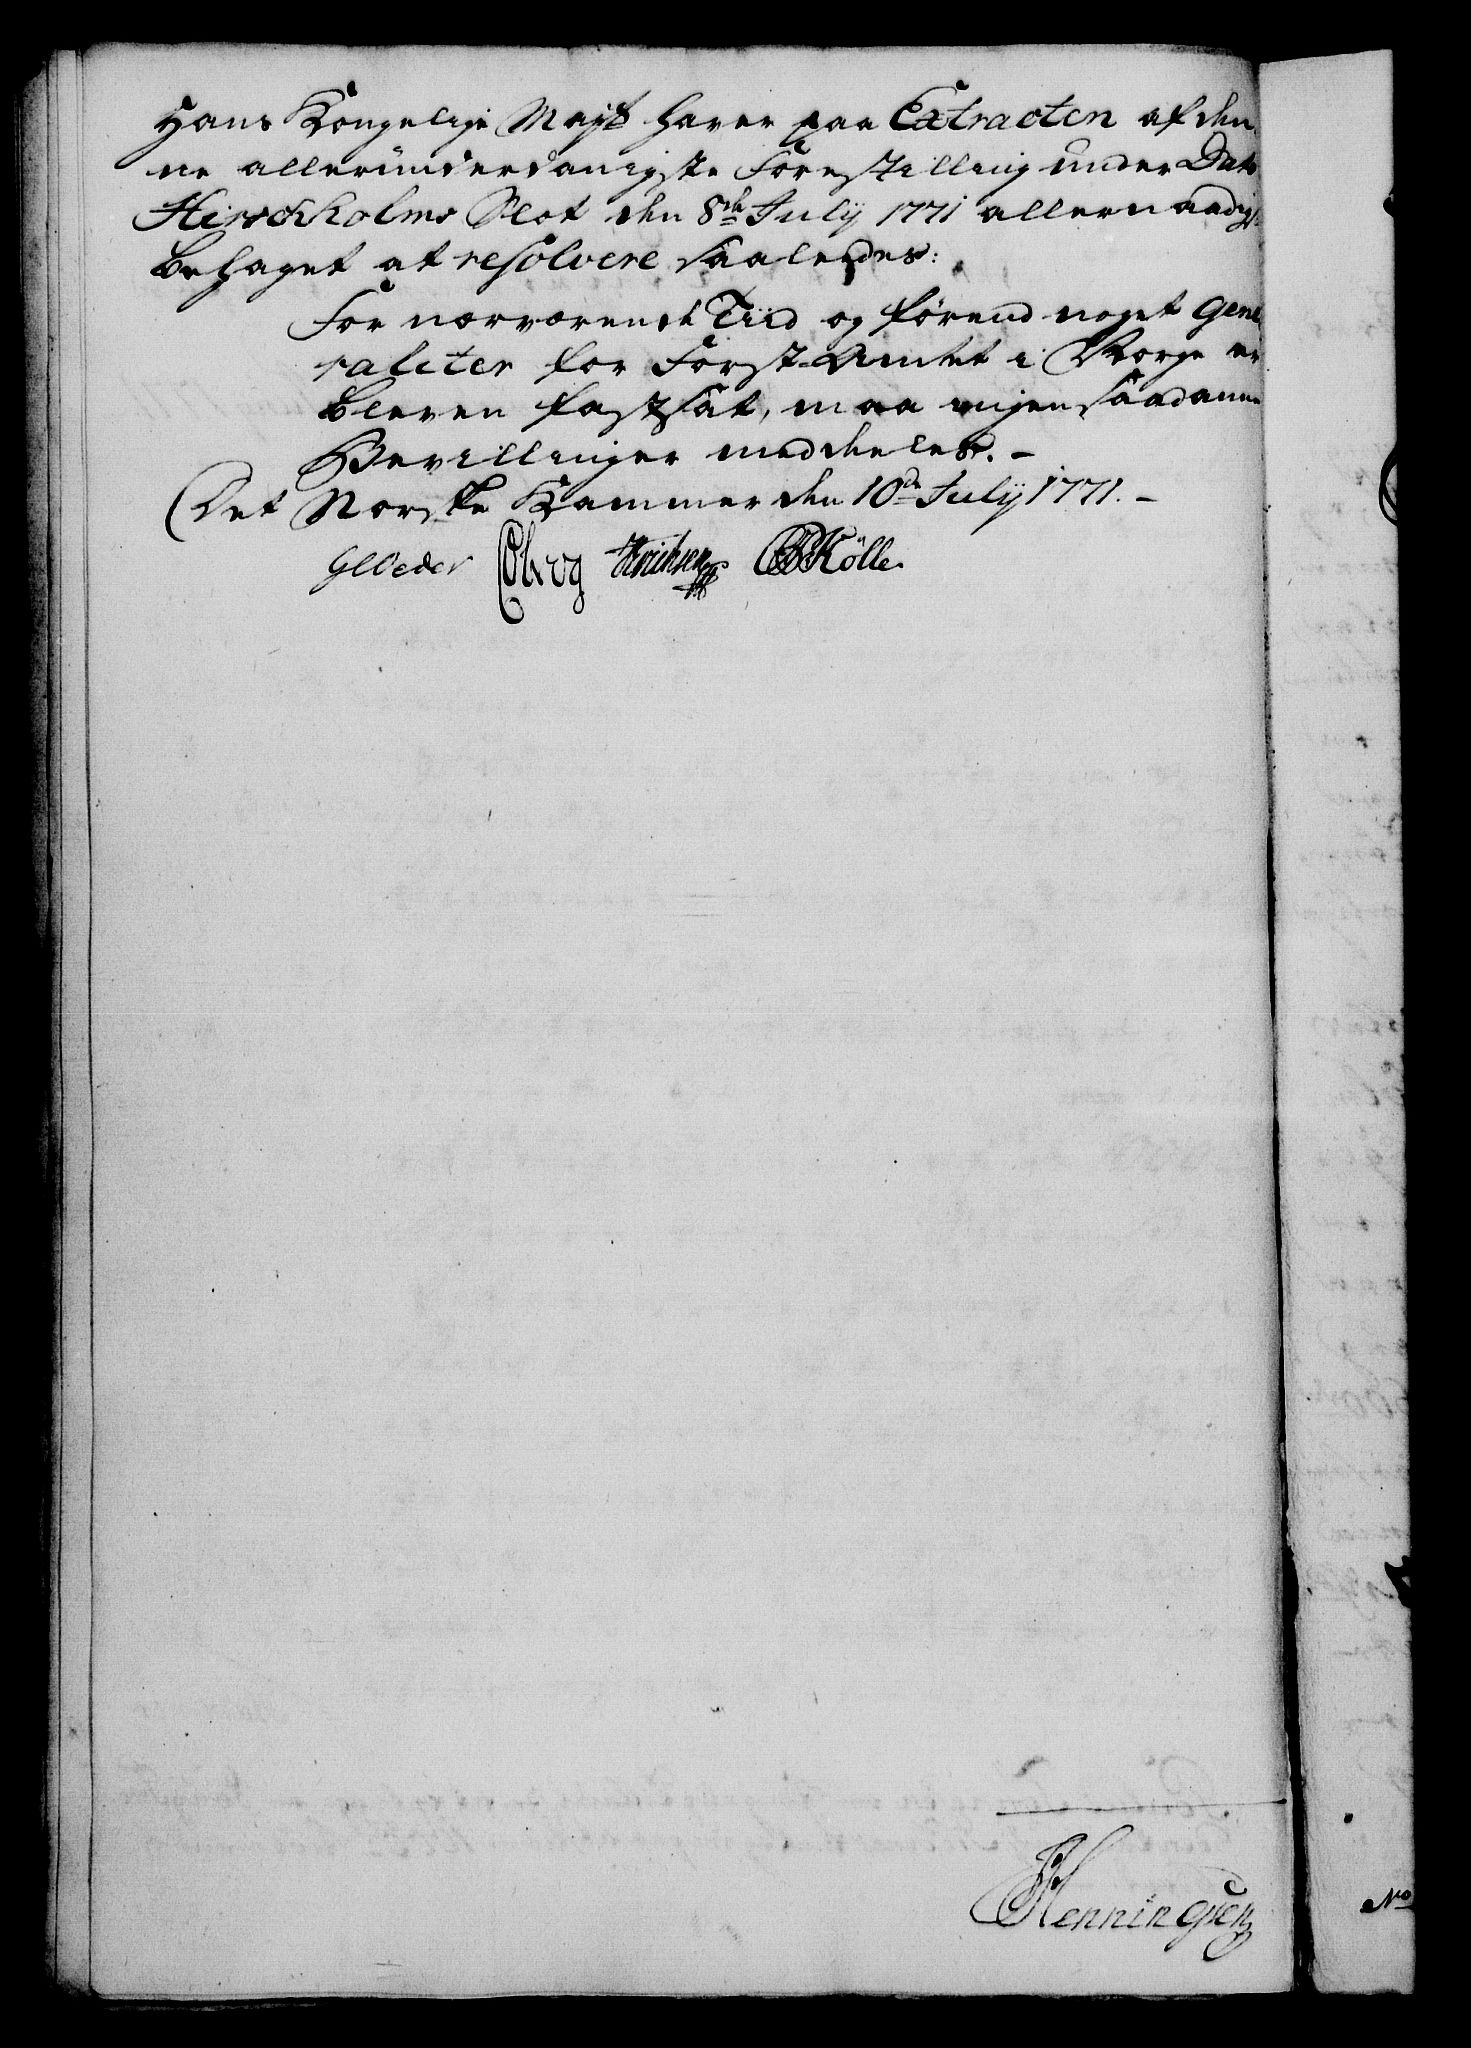 Hans Kongelige Mayt haver paa Extracten af den,
ne allerunderdanigste Forestilling under Dato
Hirschholms Slot den 8de July 1771 allernaadigst
behaget at resolvere saaledes:
For nærværende Tiid og førend noget Gene,
raliter for Forst-Amtet i Norge er
bleven fastsat, maa ingen saadanne
Bevillinger meddeeles. -
Det Norske Kammer den 10de July 1771. -
GCOeder Hvichsen Kölle.
Henningsen
No